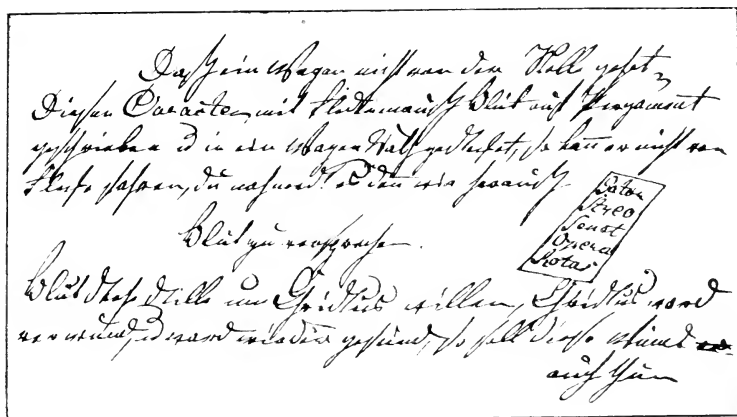 Daß ein Wagen nicht von der Stelle gehet,
Diesen Caracter mit Fledermauß Blut auf Pergament
geschrieben u in ein Wagen Rath gesteckt, so kan er nicht von
fahren, du den wie herauß
Sator
Streo
Senot
Opera
Rotas
Blut zu versprechen.
Blut steh stille um Christus willen, Christus ward
verwund, u ward wieder gesund, so soll diese wunde
auch thun